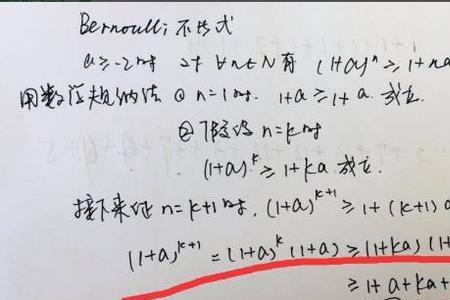 Bernoulli 不等式
a≥-2时 对 ∀n∈N 有 (1+a)ⁿ ≥ 1+na
用数学归纳法 ① n=1时. 1+a ≥ 1+a. 成立.
② 假设 n=k时
(1+a)ᵏ ≥ 1+ka 成立.
接下来证 n=k+1时, (1+a)ᵏ⁺¹ ≥ 1+(k+1)a
(1+a)ᵏ⁺¹ = (1+a)ᵏ (1+a) ≥ (1+ka) (1+
≥ 1+a+ka+